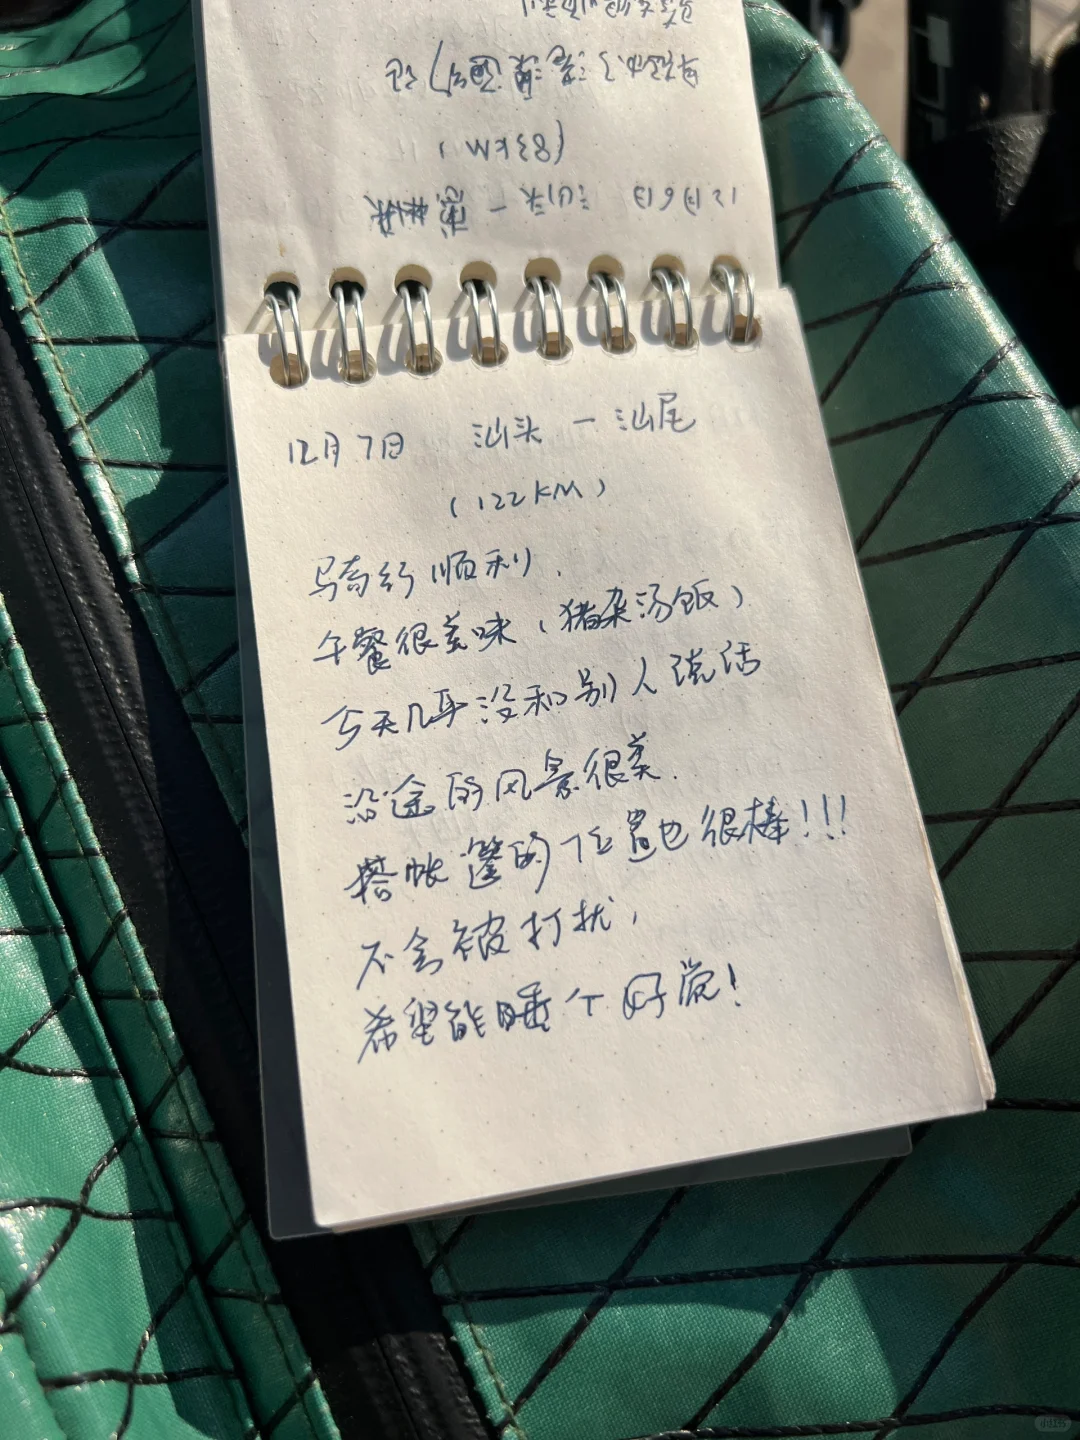 12月6日 汕头一
(83KM)
12月7日 汕头一汕尾
(122KM)
骑行顺利.
午餐很美味(猪杂汤饭)
今天几乎没和别人说话
沿途的风景很美.
搭帐篷的位置也很棒!!!
不会被打扰,
希望能睡个好觉!
小红书